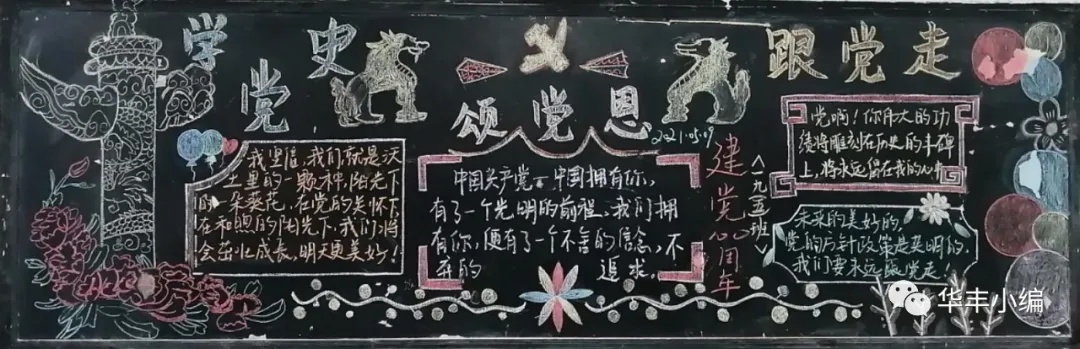 学党史
颂党恩
跟党走
2021.05.09
我坚信,我们就是沃
土里的一颗种,阳光下
的一朵葵花,在党的关怀下,
在和煦的阳光下,我们将
会茁壮成长,明天更美好!
中国共产党—中国拥有你,
有了一个光明的前程,我们拥
有你,便有了一个不舍的信念,不
弃的追求。
建党100周年
<一九五班>
党啊!你伟大的功
绩将雕刻在历史的丰碑
上,将永远留在我的心中
未来的美好的,
党的方针政策是英明的,
我们要永远跟党走!
华丰小编